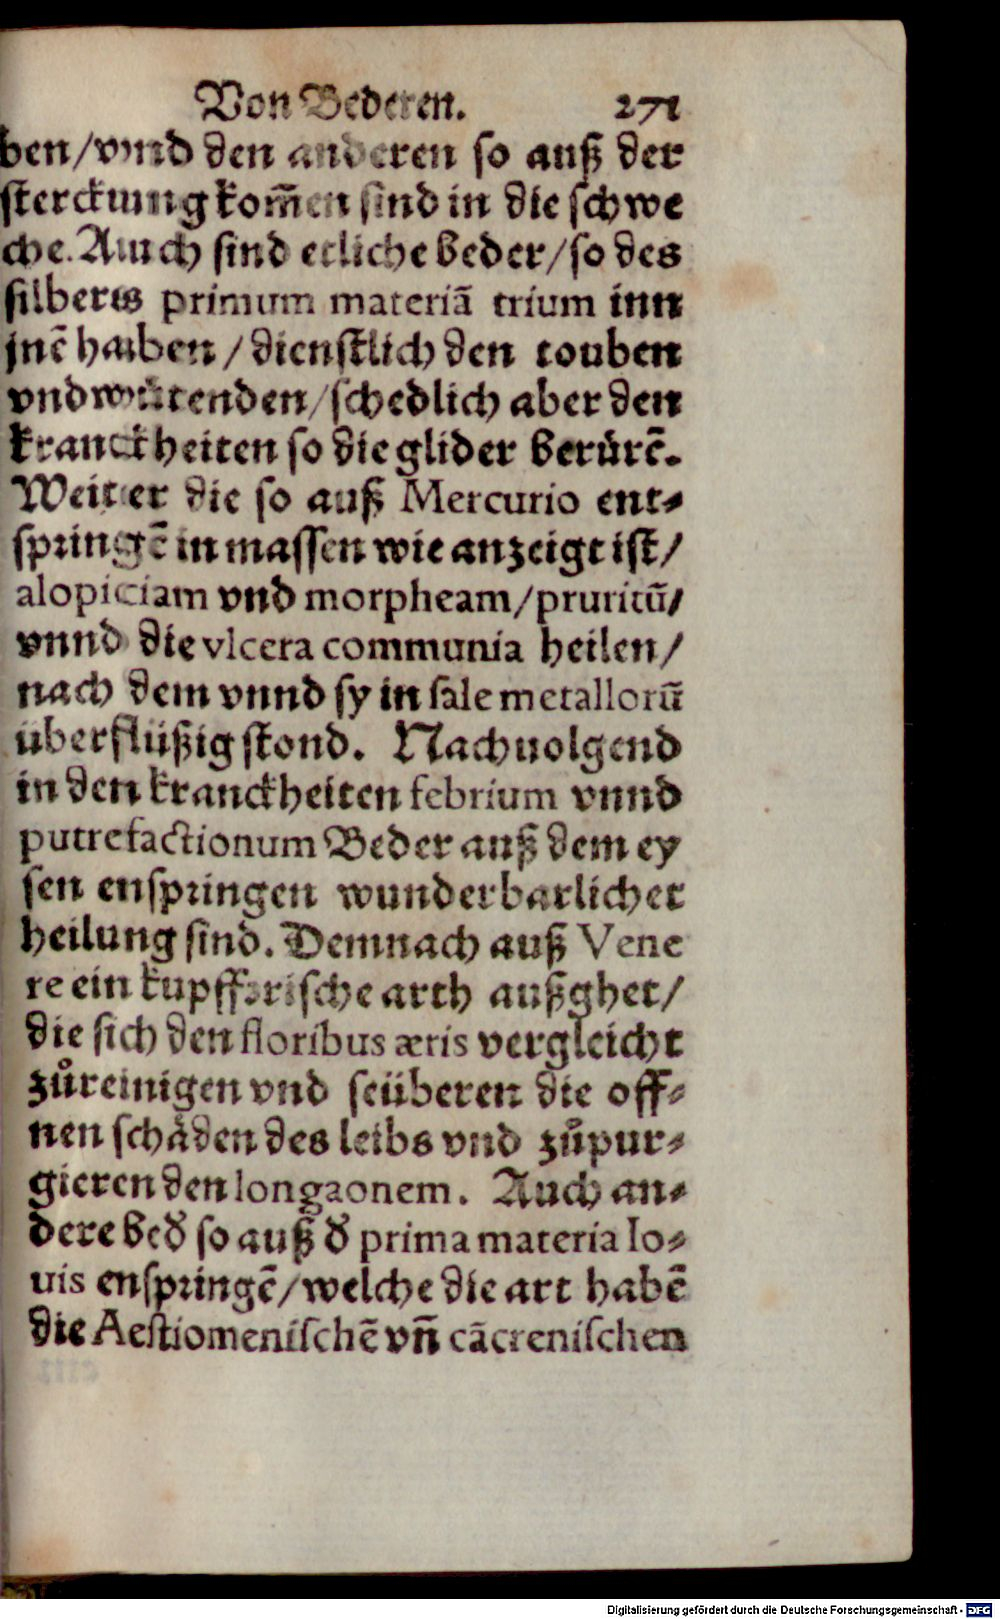 Von Bederen. 271
ben/vnnd den anderen so auß der
sterckung kom̃en sind in die schwe
che. Auch sind etliche beder/so des
silbers primum materiã trium inn
jnẽ haben / dienstlich den touben
vnd wütenden/schedlich aber den
kranckheiten so die glider berürẽ.
Weiter die so auß Mercurio ent⸗
springẽ in massen wie anzeigt ist/
alopiciam vnd morpheam/pruritũ/
vnnd die vlcera communia heilen/
nach dem vnnd sy in sale metallorũ
überflüßig stond. Nachuolgend
in den kranckheiten febrium vnnd
putrefactionum Beder auß dem ey
sen enspringen wunderbarlicher
heilung sind. Demnach auß Vene
re ein kupfferische arth außghet/
die sich den floribus æris vergleicht
zůreinigen vnd seüberen die off⸗
nen schäden des leibs vnd zůpur⸗
gieren den longaonem. Auch an⸗
dere bed̕ so auß d̕ prima materia Io⸗
uis enspringẽ/welche die art habẽ
die Aestiomenischẽ vñ cãcrenischen
Digitalisierung gefördert durch die Deutsche Forschungsgemeinschaft - DFG